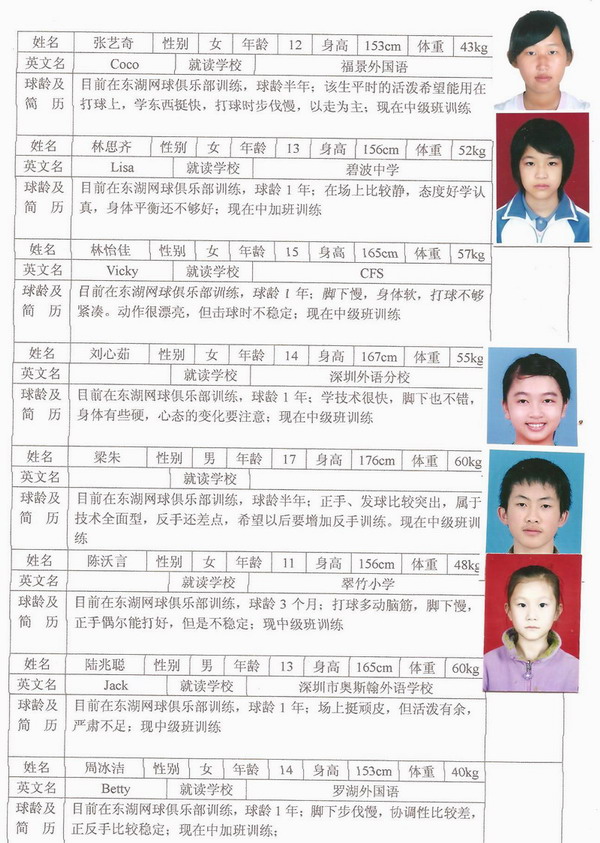 姓名 张艺奇 性别 女 年龄 12 身高 153cm 体重 43kg
英文名 Coco 就读学校 福景外国语
球龄及 目前在东湖网球俱乐部训练，球龄半年；该生平时的活泼希望能用在
简 历 打球上，学东西挺快，打球时步伐慢，以走为主；现在中级班训练
姓名 林思齐 性别 女 年龄 13 身高 156cm 体重 52kg
英文名 Lisa 就读学校 碧波中学
球龄及 目前在东湖网球俱乐部训练，球龄 1 年；在场上比较静，态度好学认
简 历 真，身体平衡还不够好；现在中加班训练
姓名 林怡佳 性别 女 年龄 15 身高 165cm 体重 57kg
英文名 Vicky 就读学校 CFS
球龄及 目前在东湖网球俱乐部训练，球龄 1 年；脚下慢，身体软，打球不够
简 历 紧凑。动作很漂亮，但击球时不稳定；现在中级班训练
姓名 刘心茹 性别 女 年龄 14 身高 167cm 体重 55kg
英文名 就读学校 深圳外语分校
球龄及 目前在东湖网球俱乐部训练，球龄 1 年；学技术很快，脚下也不错，
简 历 身体有些硬，心态的变化要注意；现在中级班训练
姓名 梁朱 性别 男 年龄 17 身高 176cm 体重 60kg
英文名 就读学校
球龄及 目前在东湖网球俱乐部训练，球龄半年；正手、发球比较突出，属于
简 历 技术全面型，反手还差点，希望以后要增加反手训练。现在中级班训
练
姓名 陈沃言 性别 女 年龄 11 身高 156cm 体重 48kg
英文名 就读学校 翠竹小学
球龄及 目前在东湖网球俱乐部训练，球龄 3 个月；打球多动脑筋，脚下慢，
简 历 正手偶尔能打好，但是不稳定；现中级班训练
姓名 陆兆聪 性别 男 年龄 13 身高 165cm 体重 60kg
英文名 Jack 就读学校 深圳市奥斯翰外语学校
球龄及 目前在东湖网球俱乐部训练，球龄 1 年；场上挺顽皮，但活泼有余，
简 历 严肃不足；现中级班训练
姓名 周冰洁 性别 女 年龄 14 身高 153cm 体重 40kg
英文名 Betty 就读学校 罗湖外国语
球龄及 目前在东湖网球俱乐部训练，球龄 1 年；脚下步伐慢，协调性比较差，
简 历 正反手比较稳定；现在中加班训练；